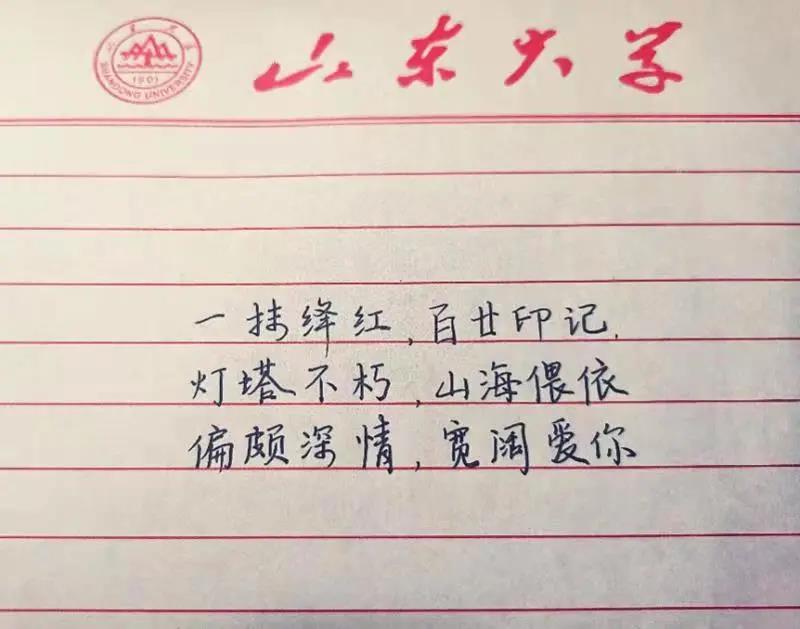 山东大学
1901
SHANDONG UNIVERSITY
一抹绛红,百廿印记.
灯塔不朽,山海偎依
偏颇深情,宽阔爱你